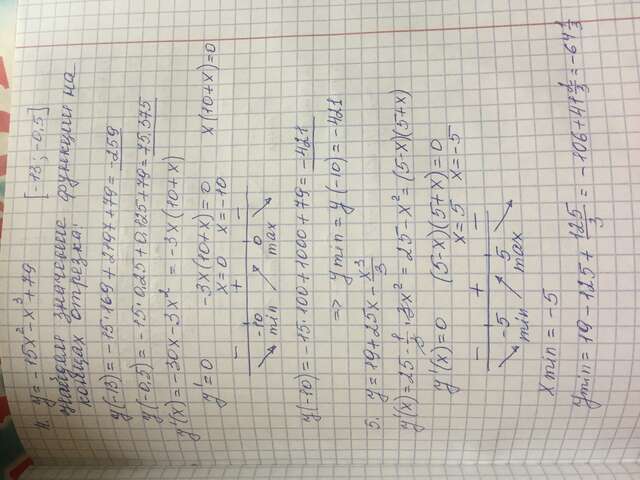 4. y = -15x² - x³ + 79 [-13; -0,5]
Найдем значение функции на
концах отрезка:
y(-13) = -15·169 + 2197 + 79 = -259
y(-0,5) = -15·0,25 + 0,125 + 79 = 75,375
y'(x) = -30x - 3x² = -3x(10+x)
y' = 0 -3x(10+x) = 0 x(10+x) = 0
x = 0 x = -10
- + -
-10 0
min max
y(-10) = -15·100 + 1000 + 79 = -421
⇒ ymin = y(-10) = -421
5. y = 19 + 25x - x³/3
y'(x) = 25 - 1/3·3x² = 25 - x² = (5-x)(5+x)
y'(x) = 0 (5-x)(5+x) = 0
x = 5 x = -5
- + -
-5 5
min max
xmin = -5
ymin = 19 - 125 + 125/3 = -106 + 41 = -64 1/3